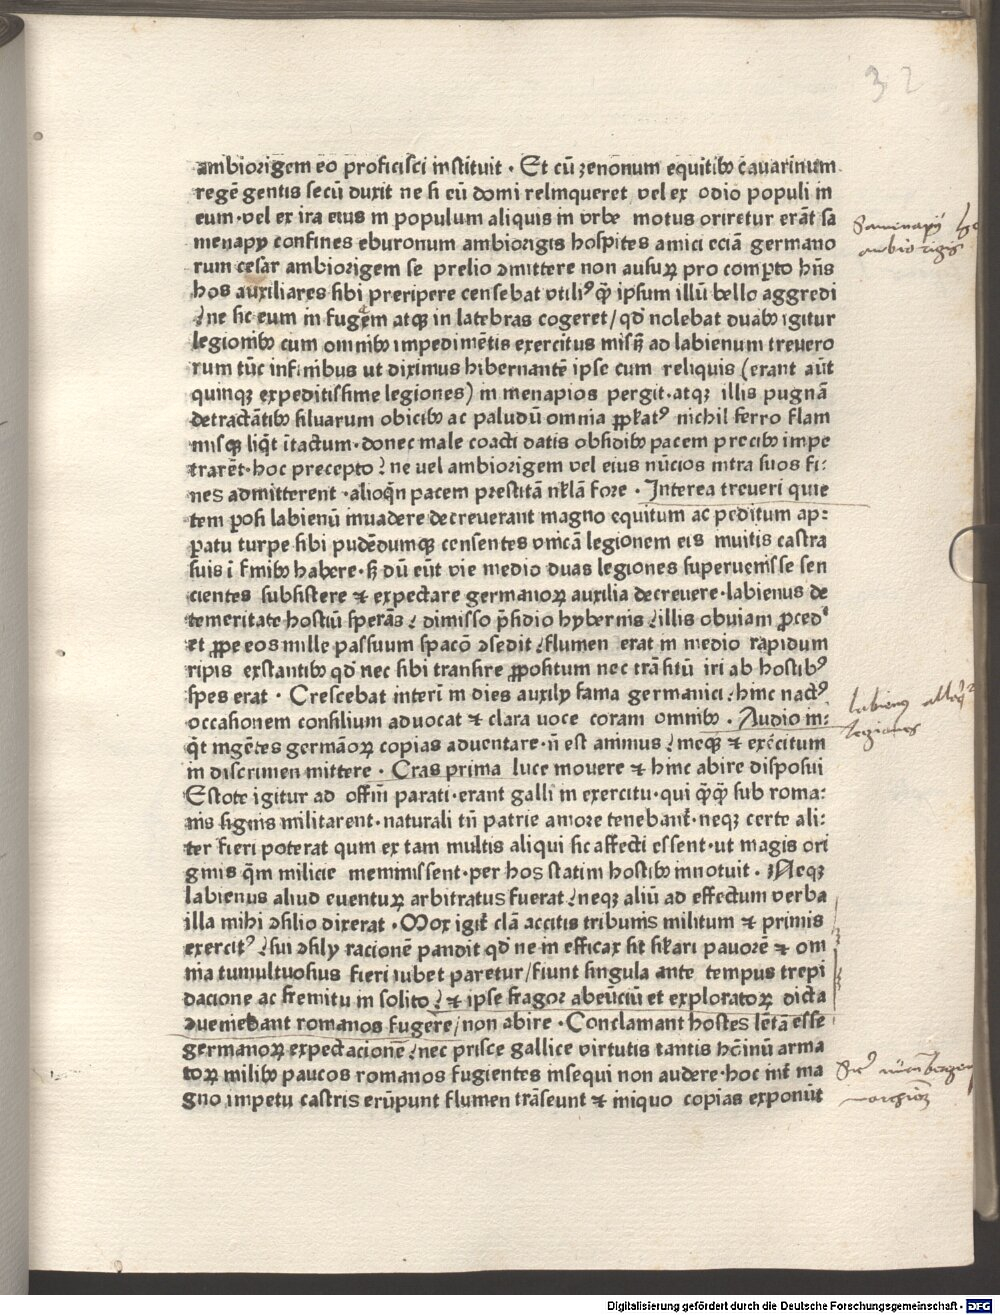 32
ambiorigem eo proficisci instituit · Et cū zenonum equitibꝰ cavarinum
regē gentis secū duxit ne si eū domi relinqueret vel ex odio populi in
eum · vel ex ira eius in populum aliquis in vrbe motus oriretur erāt sa
menapy confines eburonum ambiorigis hospites amici eciā germano
rum cesar ambiorigem se prelio ꝯmittere non ausuꝝ pro comꝑto hn̄s
hos auxiliares sibi preripere censebat vtiliꝰ qͣ̄ ipsum illū bello aggredi
¿ ne sic eum in fugem atqꝫ in latebras cogeret / qď nolebat duabꝰ igitur
legionibꝰ cum omnibꝰ impedimētis exercitus misꝫ ad labienum treuero
rum tūc in finibus ut diximus hibernantē ipse cum reliquis (erant aūt
quinqꝫ expeditissime legiones) in menapios pergit · atqꝫ illis pugnā
detractātibꝰ siluarum obicibꝰ ac paludū omnia ꝓpkatꝰ nichil ferro flam
misqꝫ liq̄t ītactum · donec male coacti datis obsidibꝰ pacem precibꝰ impe
trarēt · hoc precepto ¿ ne uel ambiorigem vel eius nūcios intra suos fi:
nes admitterent · alioqn̄ pacem prestitā nĺlā fore · Interea treueri quie
tem posi labienū inuadere decreuerant magno equitum ac peditum ap:
ꝑatu turpe sibi pudēdumqꝫ censentes vnicā legionem eis muitis castra
suis ī finibꝰ habere · sꝫ dū eūt vie medio duas legiones superuenisse sen
cientes subsistere ⁊ expectare germanoꝝ auxilia decreuere · labienus de
temeritate hostiū sperās ¿ dimisso p̄sidio hybernis ¿ illis obuiam ꝓced'
et ꝓpe eos mille passuum spacō ꝯsedit ¿ flumen erat in medio rapidum
ripis exstantibꝰ qď nec sibi transire ꝓpositum nec trāsitū iri ab hostibꝰ
spes erat · Crescebat interī in dies auxily fama germanici ¿ hinc nactꝰ
occasionem consilium aduocat ⁊ clara uoce coram omnibꝰ · Audio in:
q̄t ingētes germāoꝝ copias aduentare · n̄ est animus ¿ meqꝫ ⁊ exercitum
in discrimen mittere · Cras prima luce mouere ⁊ hinc abire disposui
Estote igitur ad offm̄ parati · erant galli in exercitu · qui qͣ̄qͣ̄ sub roma:
nis signis militarent · naturali tn̄ patrie amore tenebant᷑ · neqꝫ certe ali:
ter fieri poterat qum ex tam multis aliqui sic affecti essent · ut magis ori
ginis qͣ̄m milicie meminissent · per hos statim hostibꝰ innotuit · Neqꝫ
labienus aliud euentuꝝ arbitratus fuerat ¿ neqꝫ aliū ad effectum verba
illa mihi ꝯsilio dixerat · Mox igit᷑ clā accitis tribunis militum ⁊ primis
exercitꝰ ¿ sui ꝯsily racionē pandit qď ne in efficax sit sikari pauorē ⁊ om
nia tumultuosius fieri iubet paretur / fiunt singula ante tempus trepi
dacione ac fremitu in solito ¿ ⁊ ipse fragor abeūciū et exploratoꝝ dicta
ꝯueniebant romanos fugere / non abire · Conclamant hostes lētā esse
germanoꝝ expectacionē ¿ nec prisce gallice virtutis tantis hōinū arma
toꝝ milibꝰ paucos romanos fugientes insequi non audere · hoc int᷑ ma
gno impetu castris erūpunt flumen trāseunt ⁊ iniquo copias exponūt
Samenapij
ambiorigis
labienꝰ
legiones
Digitalisierung gefördert durch die Deutsche Forschungsgemeinschaft - DFG